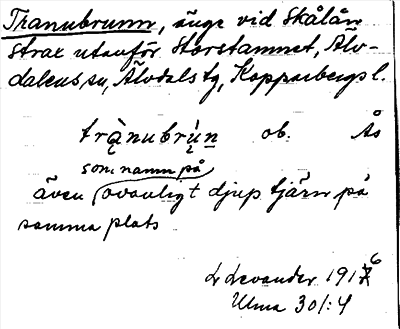 Tranubrunn, änge vid Skålån
strax utanför Storstamnet, Älv-
dalens sn, Älvdals tg, Kopparbergs l.
trạ̀nubrụ̀n ob. Ås
som namn på
även ovanligt djup tjärn på
samma plats
L Levander 1916
Ulma 301:4